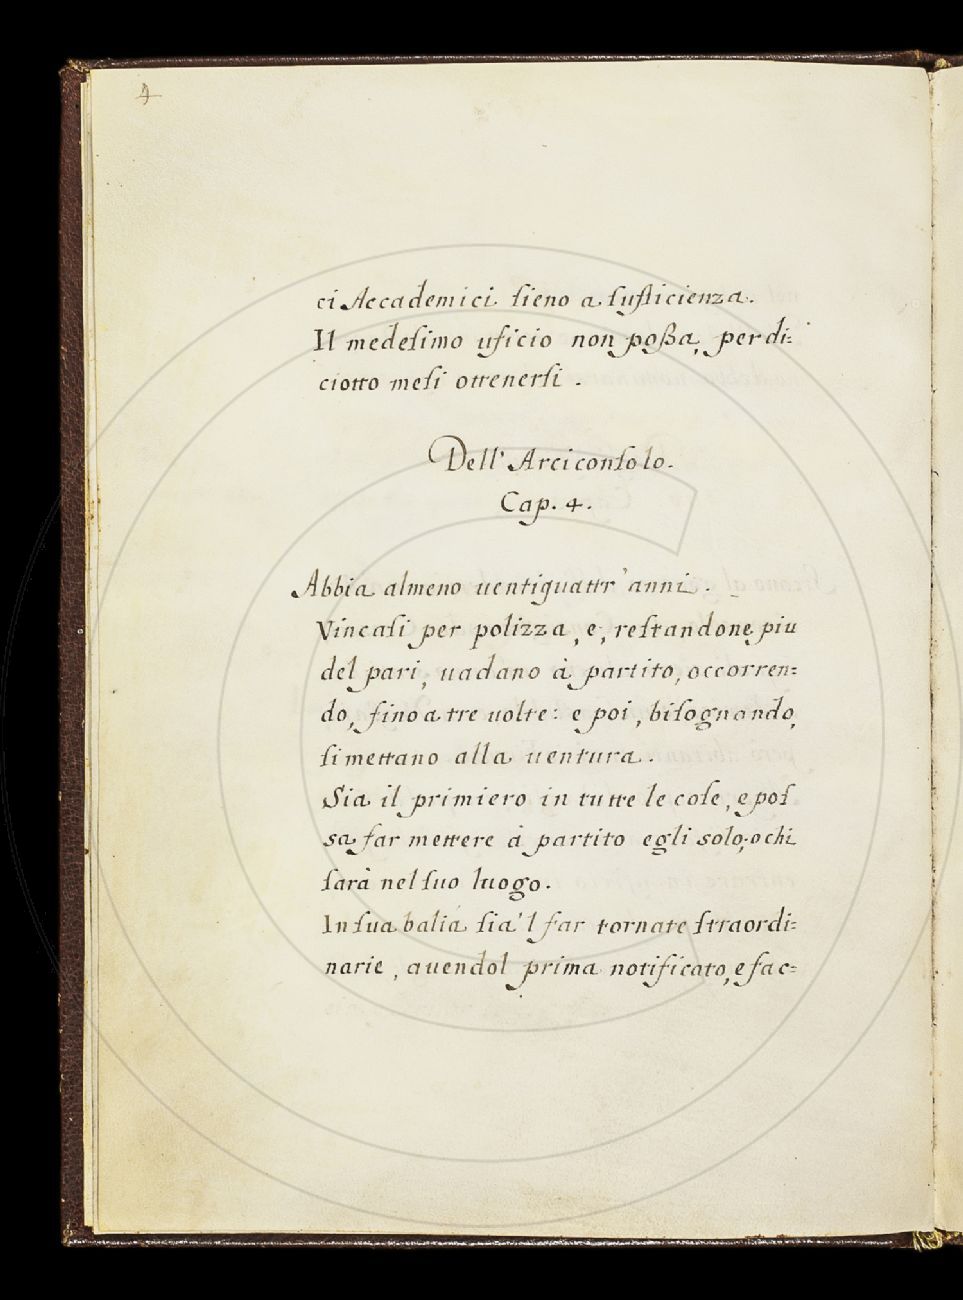 4
ci Accademici ſieno a ſufficienza.
Il medeſimo uficio non poßa, per di=
ciotto meſi ottenerſi.
Dell'Arciconſolo.
Cap. 4.
Abbia almeno uentiquattr'anni.
Vincaſi per polizza, e, reſtandone piu
del pari, uadano à partito, occorren=
do, fino a tre uolte: e poi, biſognando,
ſi mettano alla uentura.
Sia il primiero in tutte le coſe, e poſ
sa far mettere à partito egli solo, o chi
ſarà nel ſuo luogo.
In ſua balìa ſia'l far tornate ſtraordi=
narie, auendol prima notificato, e fac=